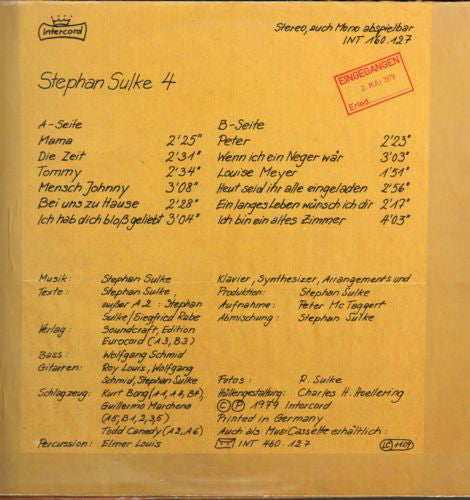 Intercord
Stereo, auch Mono abspielbar
INT 160.127
Stephan Sulke 4
EINGEGANGEN
2. MAI 1979
Erled.
A-Seite
Mama 2'25"
Die Zeit 2'31"
Tommy 2'34"
Mensch Johnny 3'08"
Bei uns zu Hause 2'28"
Ich hab dich bloß geliebt 3'04"
B-Seite
Peter 2'23"
Wenn ich ein Neger wär 3'03"
Louise Meyer 1'51"
Heut seid ihr alle eingeladen 2'56"
Ein langes Leben wünsch ich dir 2'17"
Ich bin ein altes Zimmer 4'03"
Musik: Stephan Sulke
Texte: Stephan Sulke,
außer A2: Stephan
Sulke/Siegfried Rabe
Verlag: Soundcraft, Edition
Eurocord (A3, B3)
Bass: Wolfgang Schmid
Gitarren: Roy Louis, Wolfgang
Schmid, Stephan Sulke
Schlagzeug: Kurt Bong (A1, A4, B4),
Guillermo Marchena
(A5, B1, 2, 3, 5)
Todd Canedy (A2, A6)
Percussion: Elmer Louis
Klavier, Synthesizer, Arrangements und
Produktion: Stephan Sulke
Aufnahme: Peter Mc Taggert
Abmischung: Stephan Sulke
Fotos: R. Sulke
Hüllengestaltung: Charles H. Hoellering
© ℗ 1979 Intercord
Printed in Germany
Auch als MusiCassette erhältlich:
INT 460.127
LC 1109